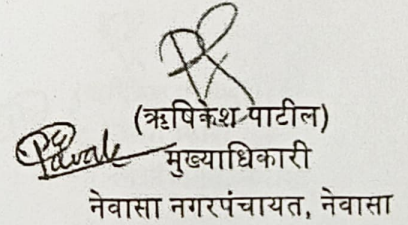 (ऋषिकेश पाटील)
मुख्याधिकारी
नेवासा नगरपंचायत, नेवासा